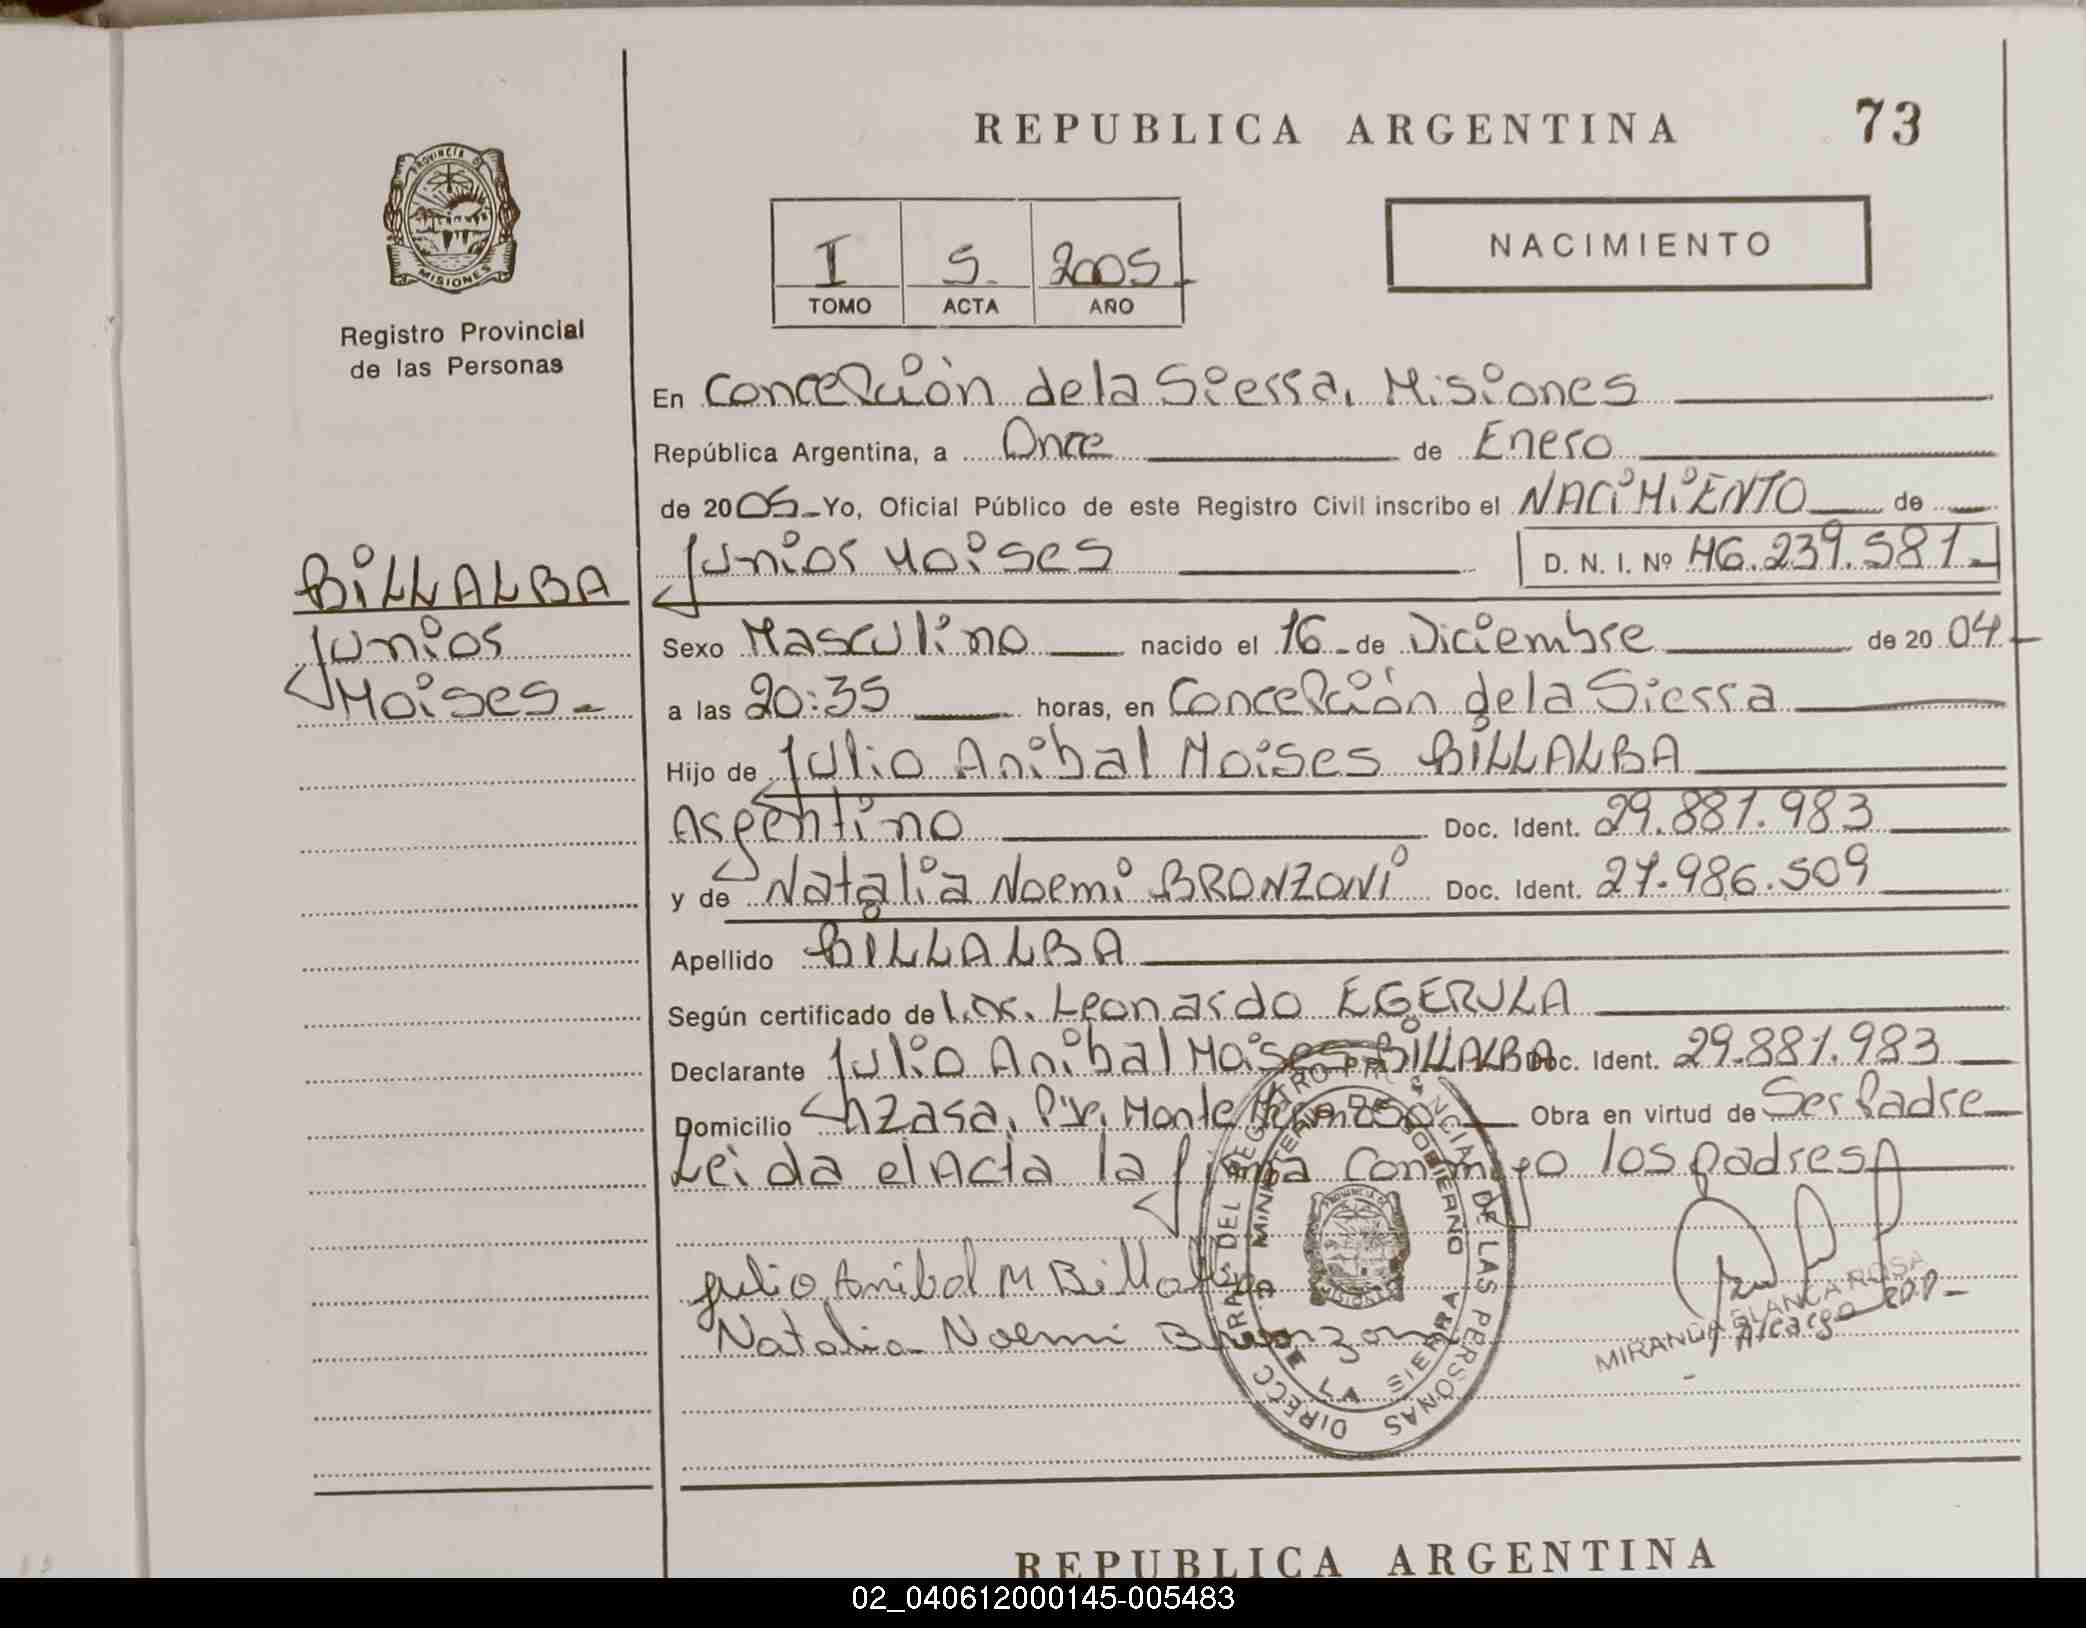 REPUBLICA ARGENTINA
73
PROVINCIA DE
MISIONES
Registro Provincial
de las Personas
I
5.
2005
TOMO
ACTA
AÑO
NACIMIENTO
En Concepciòn de la Sierra, Misiones
República Argentina, a Once de Enero
de 2005 Yo, Oficial Público de este Registro Civil inscribo el NACIMIENTO de
Junior Moises
D. N. I. Nº 46.239.581
BILLALBA
Junior
Moises
Sexo Masculino nacido el 16 de Diciembre de 2004
a las 20:35 horas, en Concepción de la Sierra
Hijo de Julio Anibal Moises BILLALBA
Argentino Doc. Ident. 29.881.983
y de Natalia Noemi BRONZONI Doc. Ident. 27.986.509
Apellido BILLALBA
Según certificado de Dr. Leonardo EGERULA
Declarante Julio Anibal Moises BILLALBA Doc. Ident. 29.881.983
Domicilio Monte Hermoso Obra en virtud de Ser Padre
Leida el Acta la firma Conmigo los padres
Julio Anibal M Billalba
Natalia Noemi Bronzoni
DIRECC GRAL DEL REGISTRO PROVINCIAL DE LAS PERSONAS
MINISTERIO DE GOBIERNO
C. DE LA SIERRA
PROVINCIA DE
MISIONES
MIRANDA BLANCA ROSA
A/cargo
REPUBLICA ARGENTINA
02_040612000145-005483